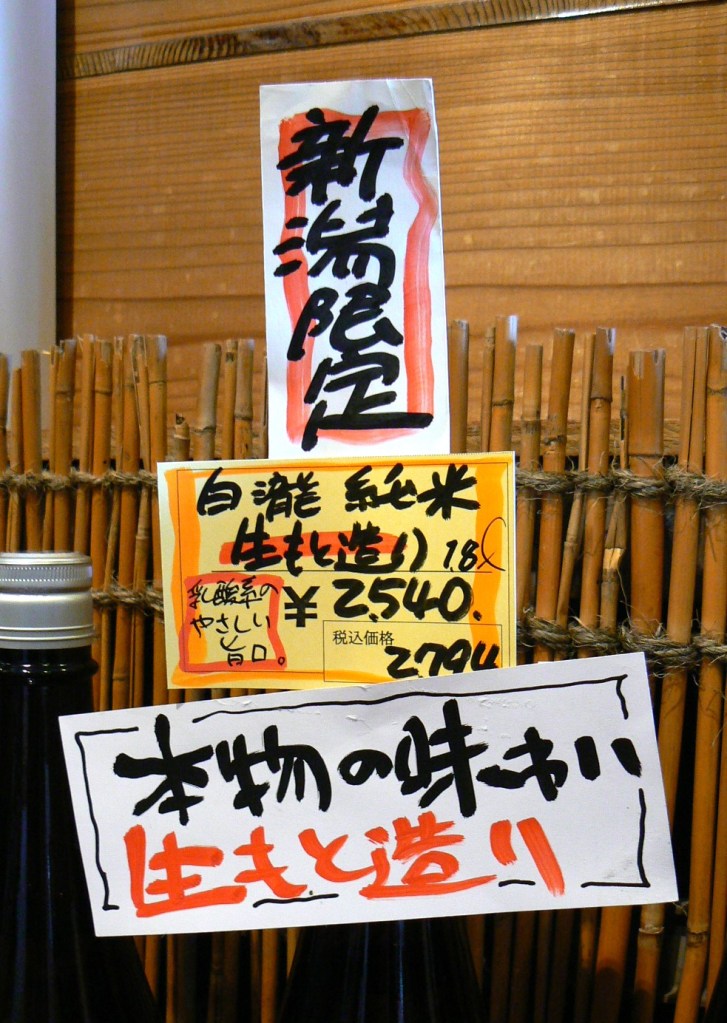 新潟限定
白瀧 純米
生もと造り 1.8ℓ
乳酸系の
やさしい
と
旨口。
¥2,540.
税込価格
2794
本物の味わい
生もと造り